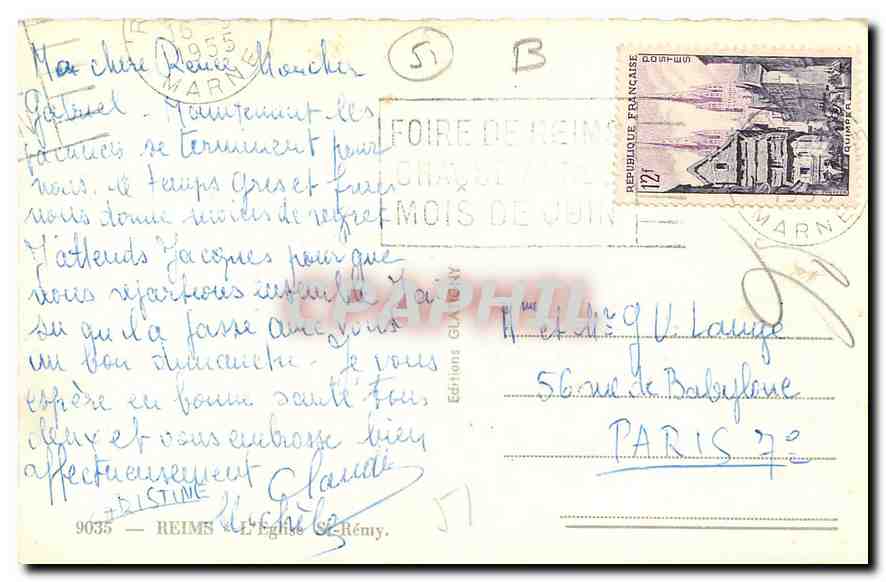 Ma chère Renée Moncher
Gabriel - Maintenant les
vacances se terminent pour
nous. le temps gris et frais
nous donne moins de regret
J'attends Jacques pour que
nous repartions ensemble J'ai
su qu'il a passé avec vous
un bon dimanche - Je vous
espère en bonne santé tous
deux et vous embrasse bien
affectueusement Claude
CHRISTINE
Michèle
9035 — REIMS - L'Eglise St-Rémy.
Editions GLATIGNY
51
B
1955
MARNE
FOIRE DE REIMS
CHAQUE ANNEE
MOIS DE JUIN
POSTES
RÉPUBLIQUE FRANÇAISE
QUIMPER
12F
1955
MARNE
CPAPHIL
Mme et Mr G V. Laugé
56 rue de Babylone
PARIS 7e
51